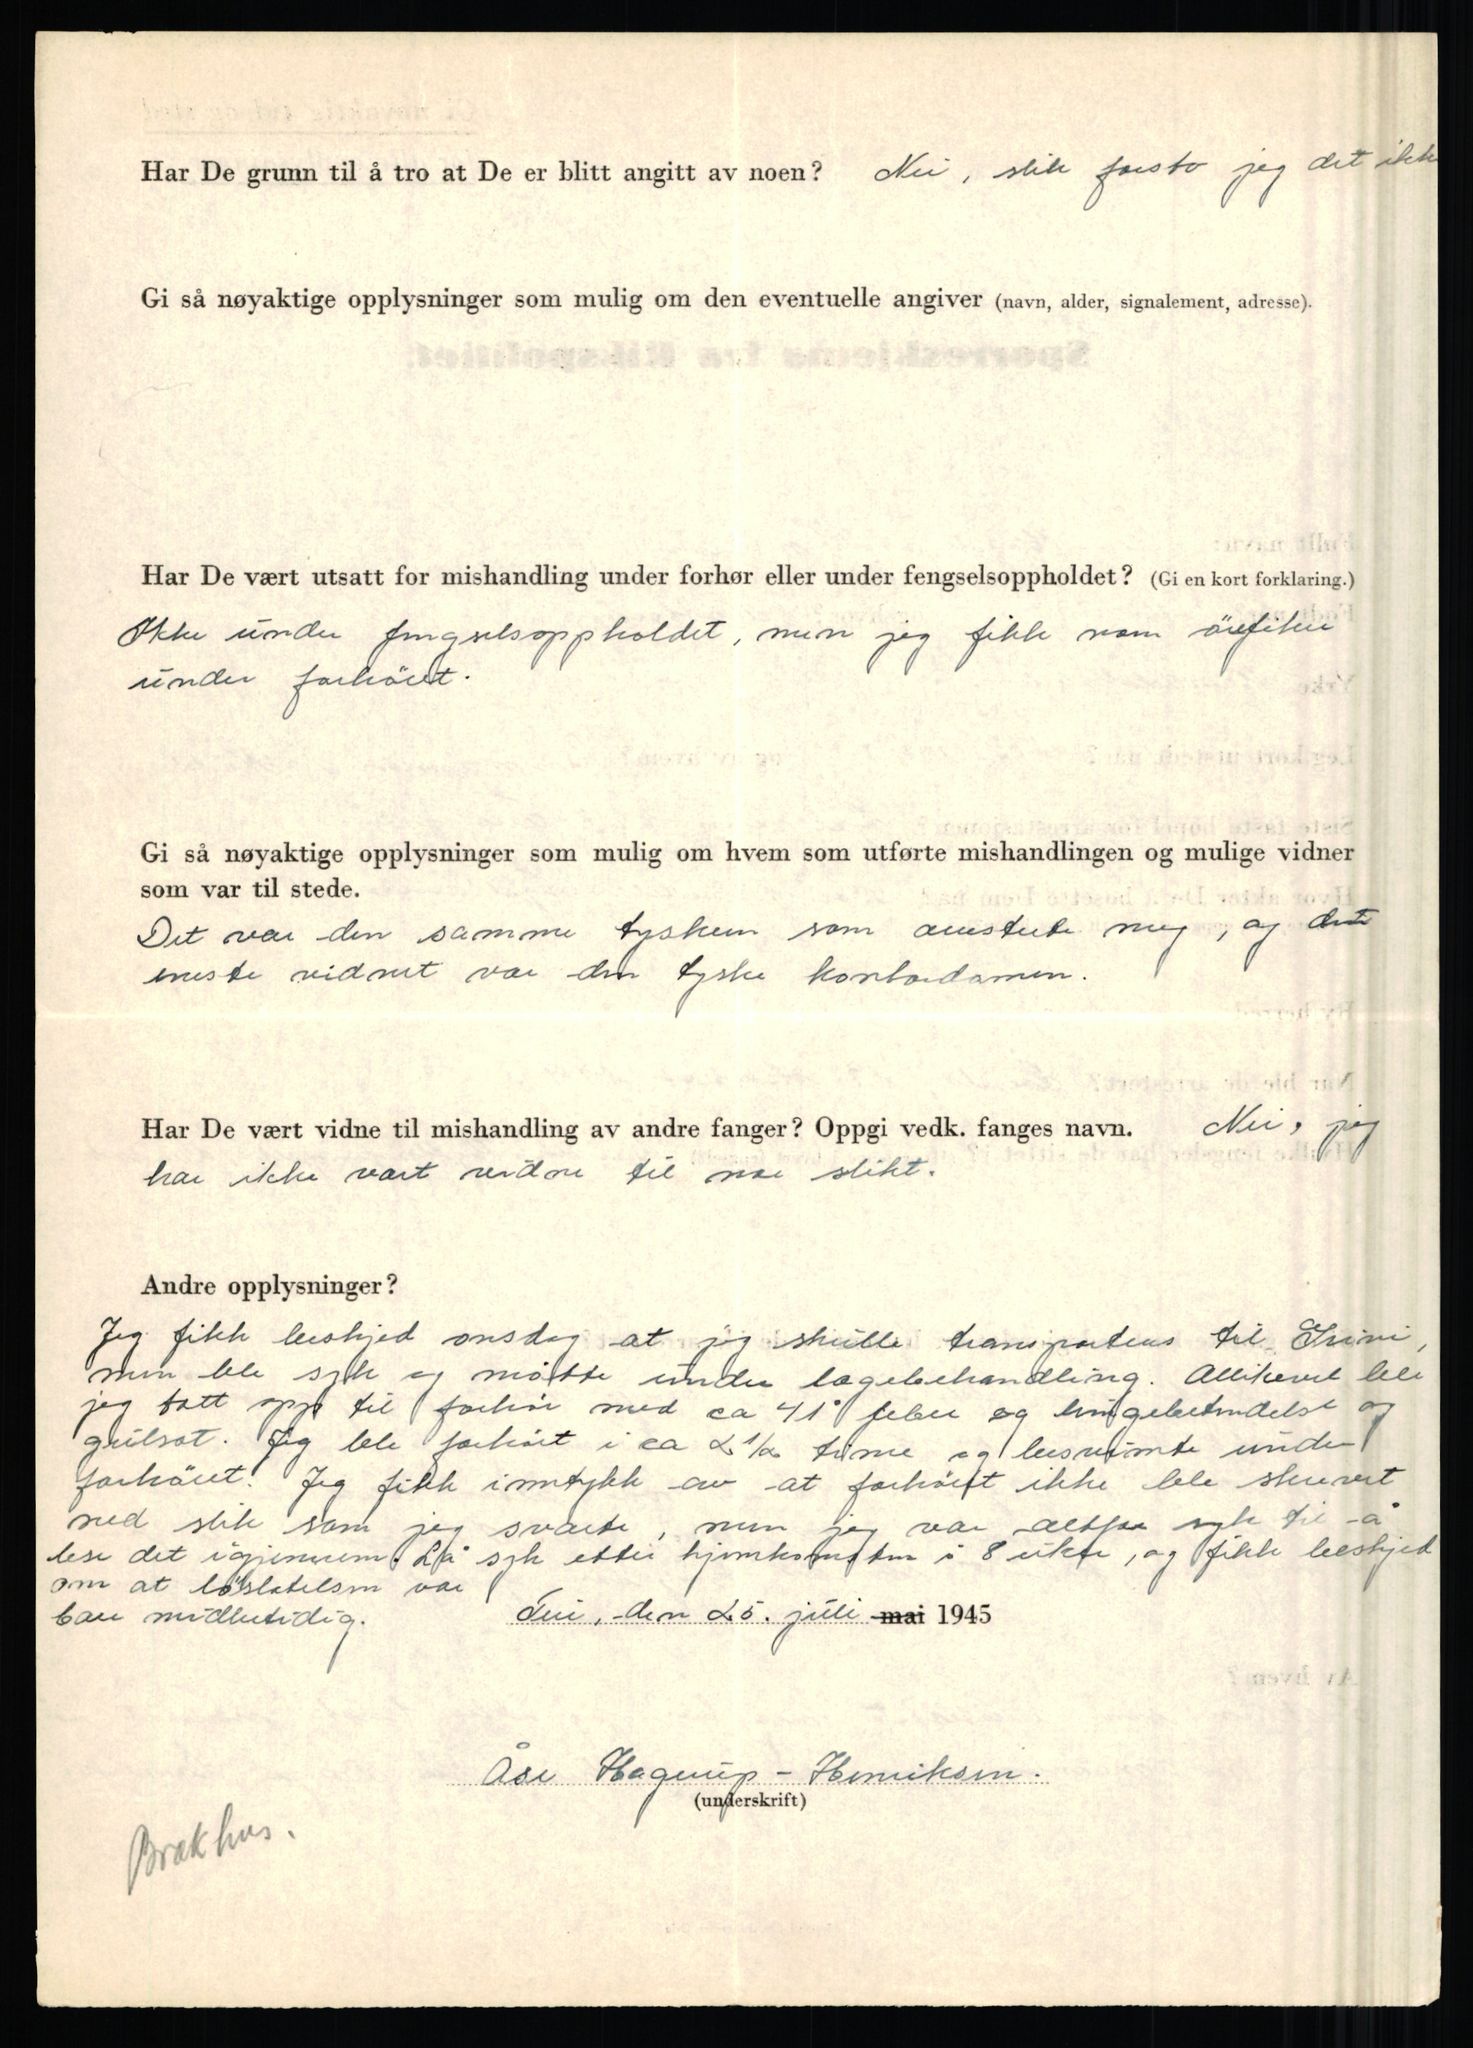 Har De grunn til å tro at De er blitt angitt av noen? Nei, slik forsto jeg det ikke
Gi så nøyaktige opplysninger som mulig om den eventuelle angiver (navn, alder, signalement, adresse).
Har De vært utsatt for mishandling under forhør eller under fengselsoppholdet? (Gi en kort forklaring.)
Ikke under fengselsoppholdet, men jeg fikk noen örefiker
under forhöret.
Gi så nøyaktige opplysninger som mulig om hvem som utførte mishandlingen og mulige vidner
som var til stede.
Det var den samme tyskeren som arresterte meg, og det
eneste vidnet var den tyske kontordamen.
Har De vært vidne til mishandling av andre fanger? Oppgi vedk. fanges navn. Nei, jeg
har ikke vært vidne til noe slikt.
Andre opplysninger?
Jeg fikk beskjed onsdag at jeg skulle transporteres til Grini,
men ble syk og måtte under lægebehandling. Allikevel ble
jeg tatt opp til forhör med ca 41° feber og lungebetendelse og
gulsot. Jeg ble forhört i ca 2 1/2 time og besvimte under
forhöret. Jeg fikk inntrykk av at forhöret ikke ble skrevet
ned slik som jeg svarte, men jeg var altfor syk til å
lese det igjennem. Lå syk etter hjemkomsten i 8 uker, og fikk beskjed
om at löslatelsen var
bare midlertidig.
den 25. juli mai 1945
Åse Hagerup-Henriksen.
(underskrift)
Brakhus.